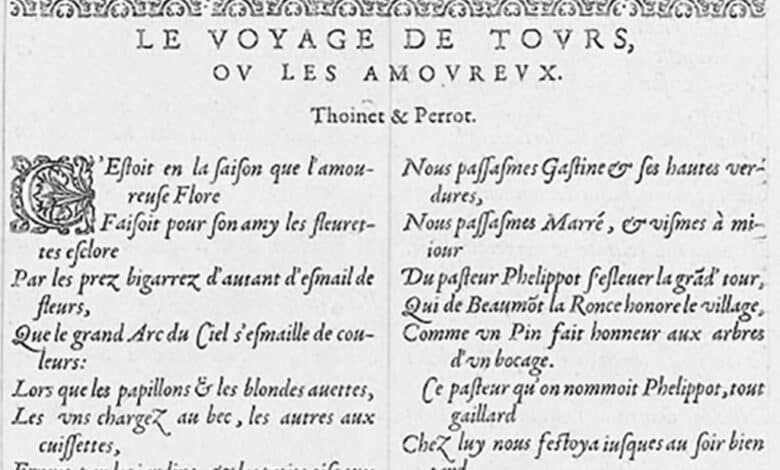 LE VOYAGE DE TOVRS,
OV LES AMOVREVX.
Thoinet & Perrot.
C'Estoit en la saiſon que l'amou-
reuſe Flore
Faiſoit pour ſon amy les fleuret-
tes eſclore
Par les prez bigarrez d'autant d'eſmail de
fleurs,
Que le grand Arc du Ciel s'eſmaille de cou-
leurs:
Lors que les papillons & les blondes auettes,
Les vns chargez au bec, les autres aux
cuiſſettes,
Nous paſſaſmes Gaſtine & ſes hautes ver-
dures,
Nous paſſaſmes Marré, & viſmes à mi-
iour
Du paſteur Phelippot s'eſleuer la grãd' tour,
Qui de Beaumõt la Ronce honore le village,
Comme vn Pin fait honneur aux arbres
d'vn bocage.
Ce paſteur qu'on nommoit Phelippot, tout
gaillard
Chez luy nous feſtoya iuſques au ſoir bien